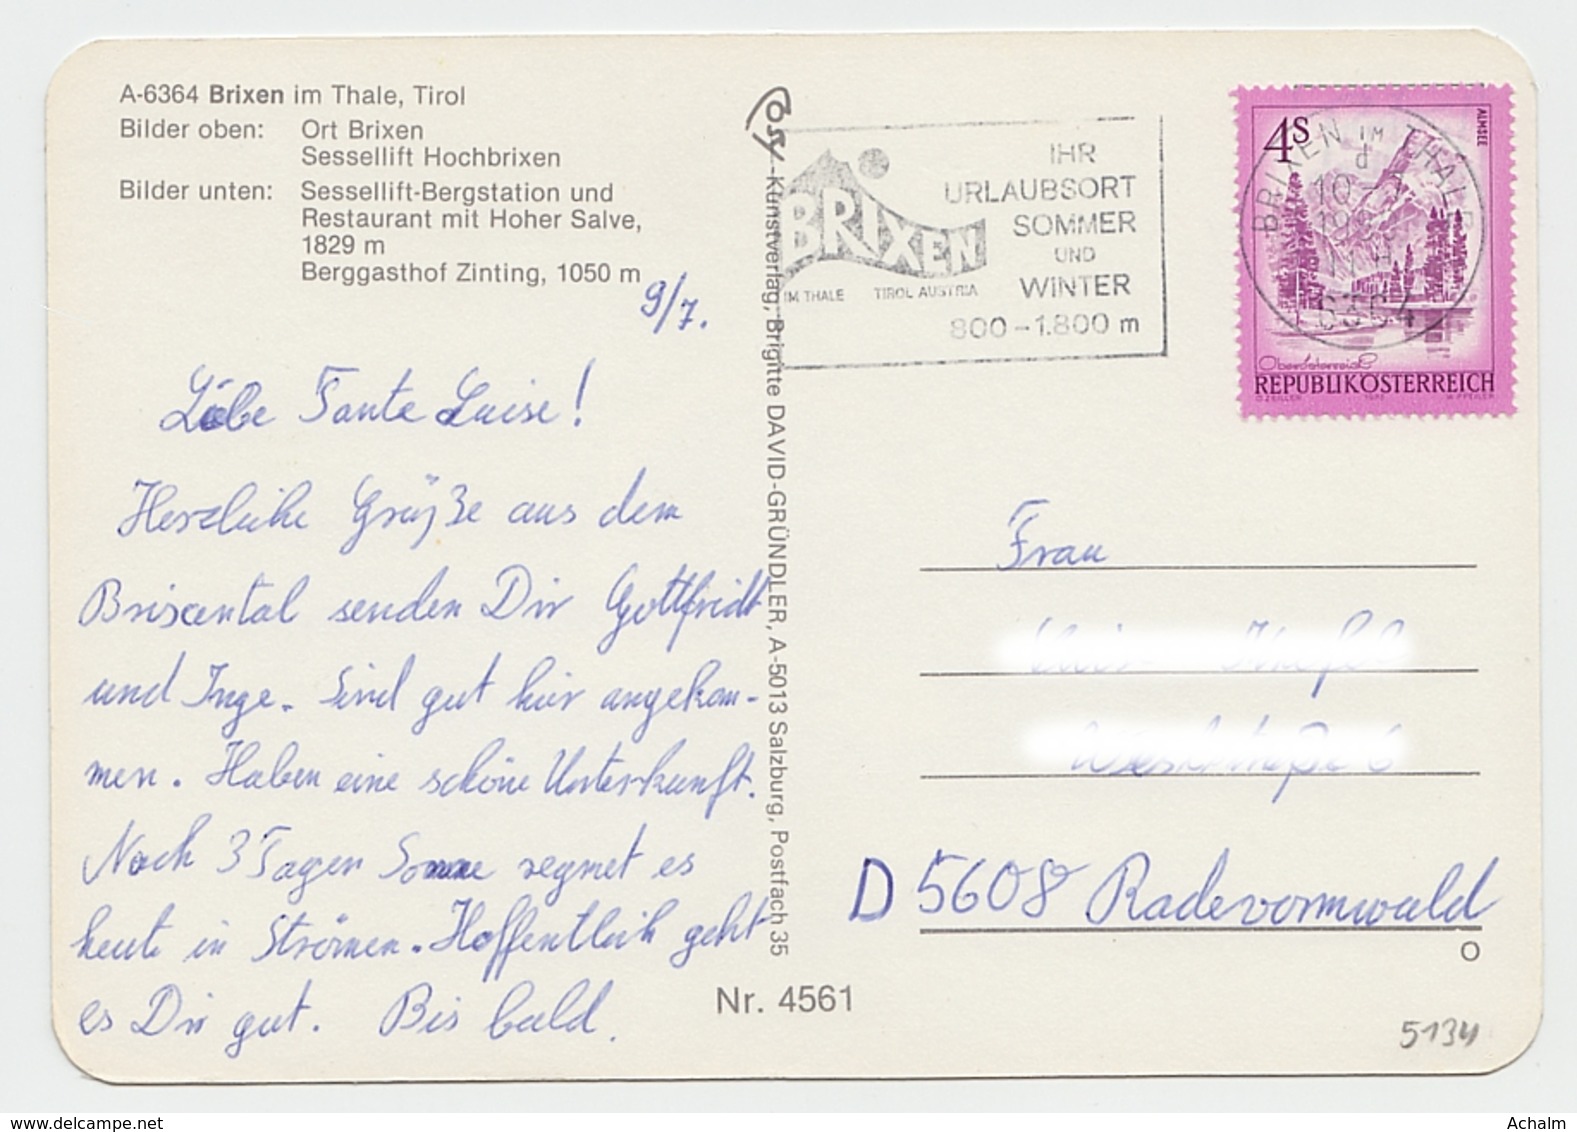 A-6364 Brixen im Thale, Tirol
Bilder oben: Ort Brixen
Sessellift Hochbrixen
Bilder unten: Sessellift-Bergstation und
Restaurant mit Hoher Salve,
1829 m
Berggasthof Zinting, 1050 m
9/7.
Liebe Tante Luise!
Herzliche Grüße aus dem
Brixental senden Dir Gottfridt
und Inge. Sind gut hier angekom-
men. Haben eine schöne Unterkunft.
Nach 3 Tagen Sonne regnet es
heute in Strömen. Hoffentlich geht
es Dir gut. Bis bald.
Cosy-Kunstverlag, Brigitte DAVID-GRÜNDLER, A-5013 Salzburg, Postfach 35
Nr. 4561
BRIXEN
IM THALE TIROL AUSTRIA
IHR
URLAUBSORT
SOMMER
UND
WINTER
800-1.800 m
4S
ALMSEE
BRIXEN IM THALE
d
6364
Oberösterreich
REPUBLIK ÖSTERREICH
O. ZEILER 1973 W. PFEILER
Frau
D 5608 Radevormwald
O
5134
www.delcampe.net
Achalm